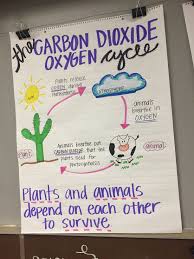 the CARBON DIOXIDE
OXYGEN cycle
plants release
OXYGEN during
photosynthesis
atmosphere
animals
breathe in
OXYGEN
plant
animals breathe out
CARBON DIOXIDE that the
plants need for
photosynthesis
animal
Plants and animals
depend on each other
to survive